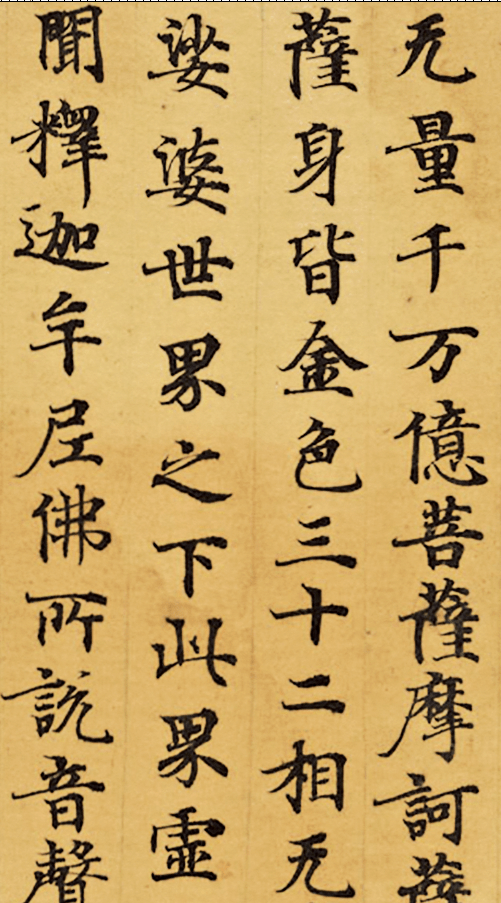 无量千万億菩薩摩訶薩
薩身皆金色三十二相无
娑婆世界之下此界虛
聞釋迦牟尼佛所說音聲